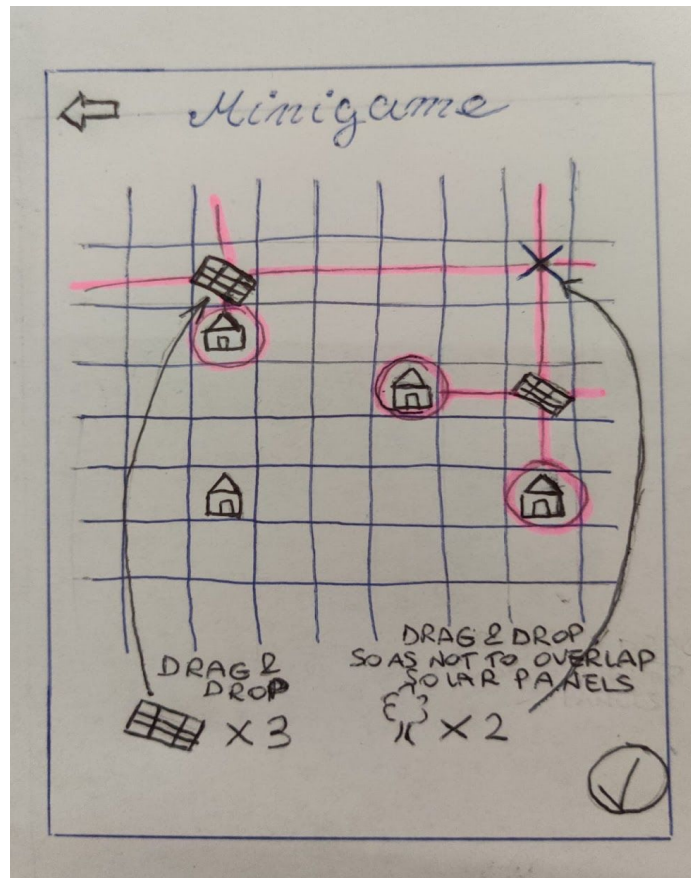 Minigame
DRAG &
DROP
X 3
DRAG & DROP
SO AS NOT TO OVERLAP
SOLAR PANELS
X 2